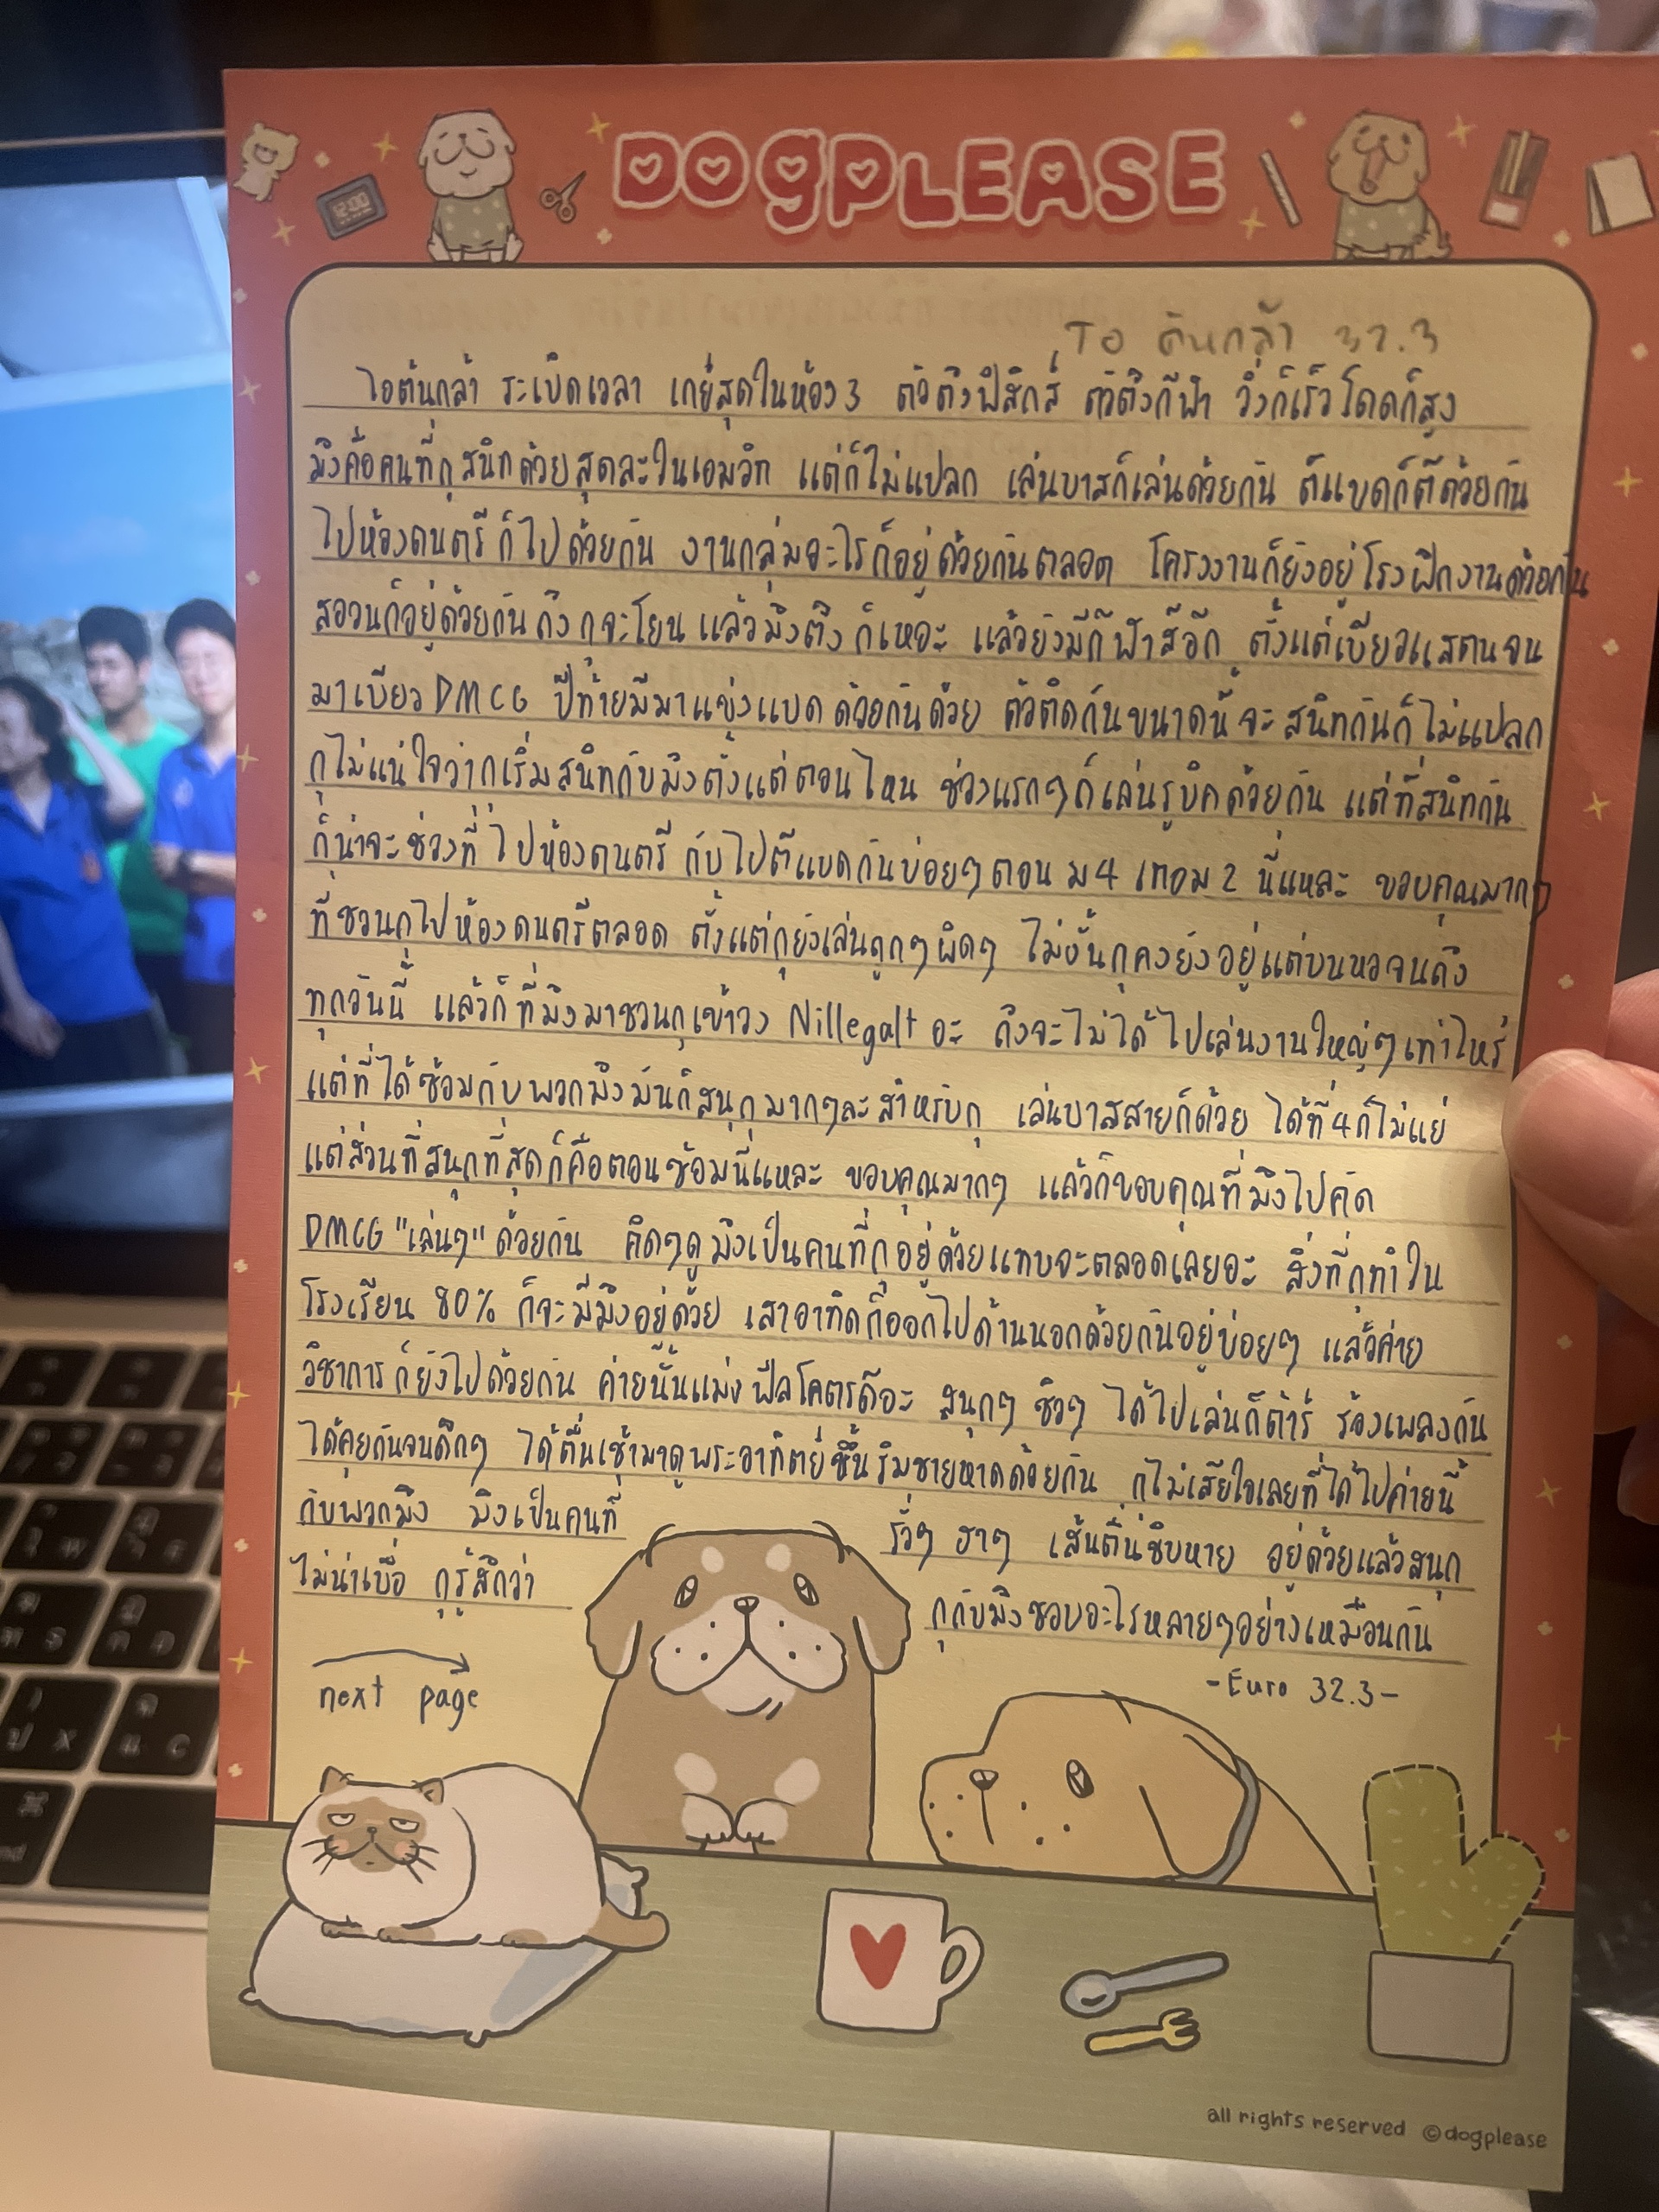 DOGPLEASE
12:00
To ต้นกล้า 32.3
ไอต้นกล้า ระเบิดเวลา เกย์สุดในห้อง 3 ตัวตึงฟิสิกส์ ตัวตึงกีฬา วิ่งก็เร็วโดดก็สูง
มึงคือคนที่กุสนิทด้วยสุดละในเอมวิท แต่ก็ไม่แปลก เล่นบาสก็เล่นด้วยกัน ตีแบดก็ตีด้วยกัน
ไปห้องดนตรีก็ไปด้วยกัน งานกลุ่มอะไรก็อยู่ด้วยกันตลอด โครงงานก็ยังอยู่โรงฝึกงานด้วยกัน
สอวนก็อยู่ด้วยกันถึงกุจะโยน แล้วมึงตึงก็เหอะ แล้วยังมีกีฬาสีอีก ตั้งแต่เขียวแสตนจน
มาเขียว DMCG ปีท้ายมีมาแข่งแบดด้วยกันด้วย ตัวติดกันขนาดนี้จะสนิทกันก็ไม่แปลก
กุไม่แน่ใจว่ากุเริ่มสนิทกับมึงตั้งแต่ตอนไหน ช่วงแรกๆก็เล่นรูบิคด้วยกัน แต่ที่สนิทกัน
ก็น่าจะช่วงที่ไปห้องดนตรี กับไปตีแบดกันบ่อยๆตอน ม 4 เทอม 2 นี่แหละ ขอบคุณมากๆ
ที่ชวนกุไปห้องดนตรีตลอด ตั้งแต่กุยังเล่นถูกๆผิดๆ ไม่งั้นกุคงยังอยู่แต่บนหอจนถึง
ทุกวันนี้ แล้วก็ที่มึงมาชวนกุเข้าวง Nillegalt อะ ถึงจะไม่ได้ไปเล่นงานใหญ่ๆเท่าไหร่
แต่ที่ได้ซ้อมกับพวกมึงมันก็สนุกมากๆละสำหรับกุ เล่นบาสสายก็ด้วย ได้ที่4ก็ไม่แย่
แต่ส่วนที่สนุกที่สุดก็คือตอนซ้อมนี่แหละ ขอบคุณมากๆ แล้วก็ขอบคุณที่มึงไปคัด
DMCG "เล่นๆ" ด้วยกัน คิดๆดูมึงเป็นคนที่กุอยู่ด้วยแทบจะตลอดเลยอะ สิ่งที่กุทำใน
โรงเรียน 80% ก็จะมีมึงอยู่ด้วย เสาอาทิตก็ออกไปด้านนอกด้วยกันอยู่บ่อยๆ แล้วค่าย
วิชาการก็ยังไปด้วยกัน ค่ายนั้นแม่งฟีลโคตรดีอะ สนุกๆ ชิวๆ ได้ไปเล่นกีต้าร์ ร้องเพลงกัน
ได้คุยกันจนดึกๆ ได้ตื่นเช้ามาดูพระอาทิตย์ขึ้นริมชายหาดด้วยกัน กุไม่เสียใจเลยที่ได้ไปค่ายนี้
กับพวกมึง มึงเป็นคนที่ รั่วๆ ฮาๆ เส้นตื้นชิบหาย อยู่ด้วยแล้วสนุก
ไม่น่าเบื่อ กุรู้สึกว่า กุกับมึงชอบอะไรหลายๆอย่างเหมือนกัน
-Euro 32.3-
next page
all rights reserved ©dogplease